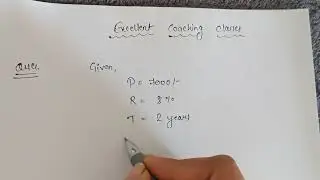 Excellent Coaching Classes
Ques. Given,
P = 7000/-
R = 8%
T = 2 years